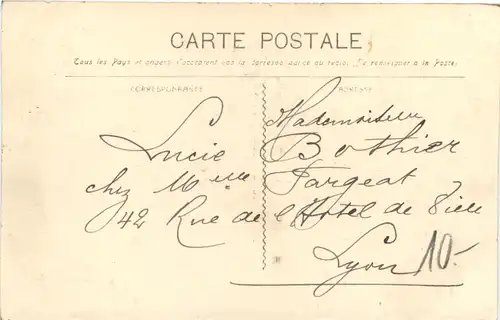 CARTE POSTALE
Tous les Pays étrangers n'acceptent pas la correspondance au recto. (Se renseigner à la Poste)
CORRESPONDANCE
ADRESSE
Mademoiselle
Lucie Bothier
chez Melle Fargeat
42 Rue de l'Hotel de Ville
Lyon
10.-